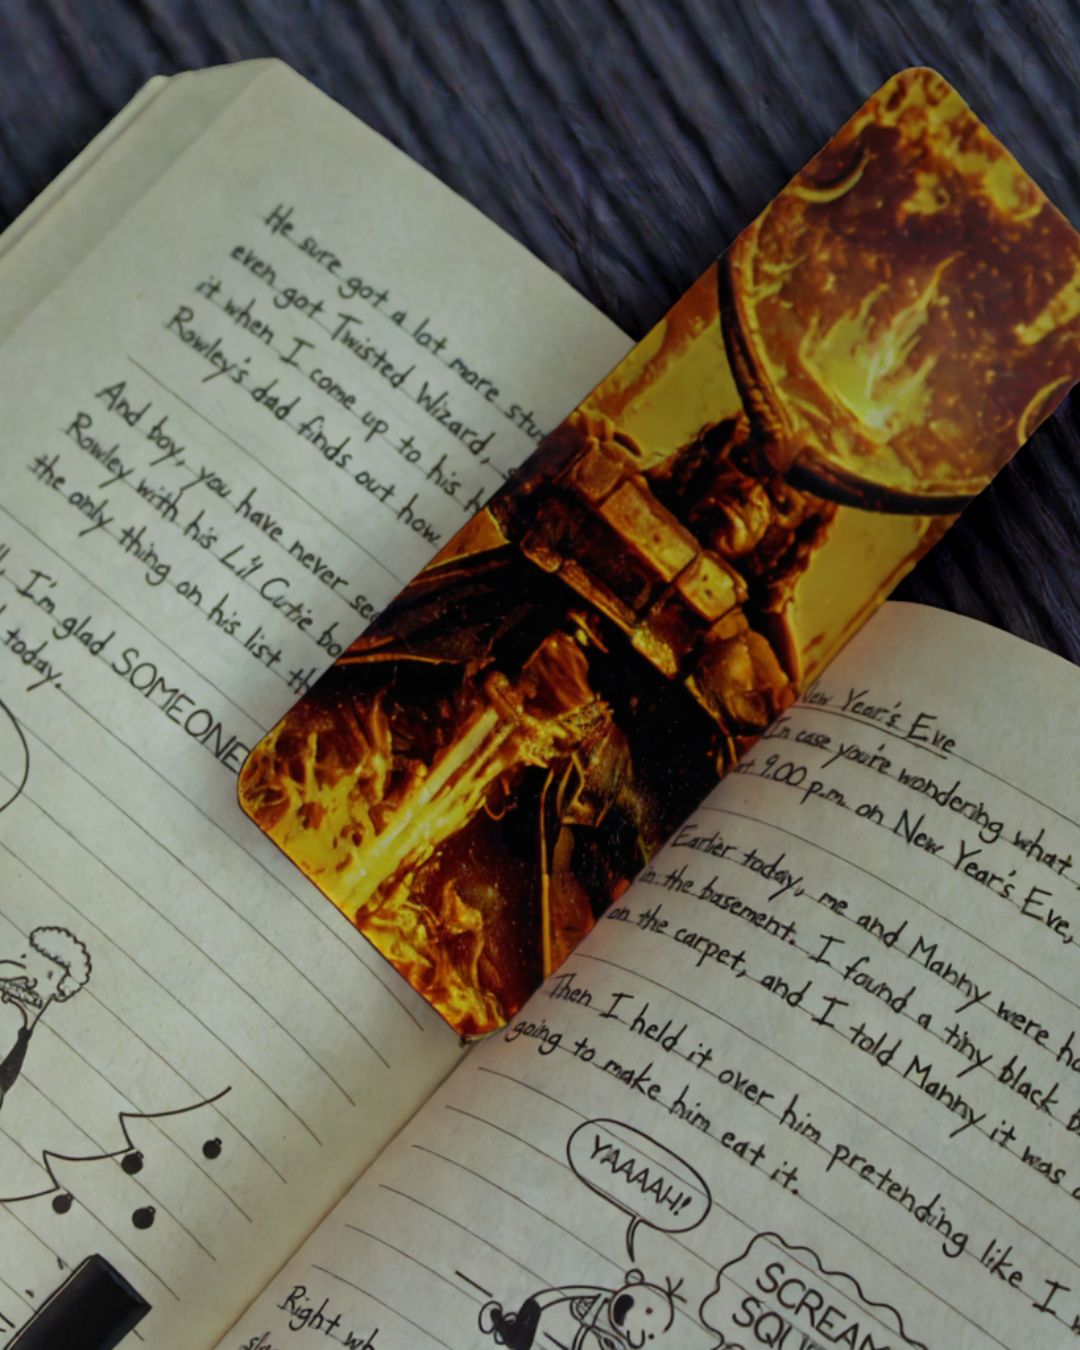 He sure got a lot more stu
even got Twisted Wizard,
it when I come up to his h
Rowley's dad finds out how
And boy, you have never see
Rowley with his Li'l Cutie bo
the only thing on his list th
I'm glad SOMEONE
today.
New Year's Eve
In case you're wondering what
at 9:00 p.m. on New Year's Eve,
Earlier today, me and Manny were ho
in the basement. I found a tiny black b
on the carpet, and I told Manny it was a
Then I held it over him pretending like I w
going to make him eat it.
YAAAAH!
SCREAM
SQUI
Right wh